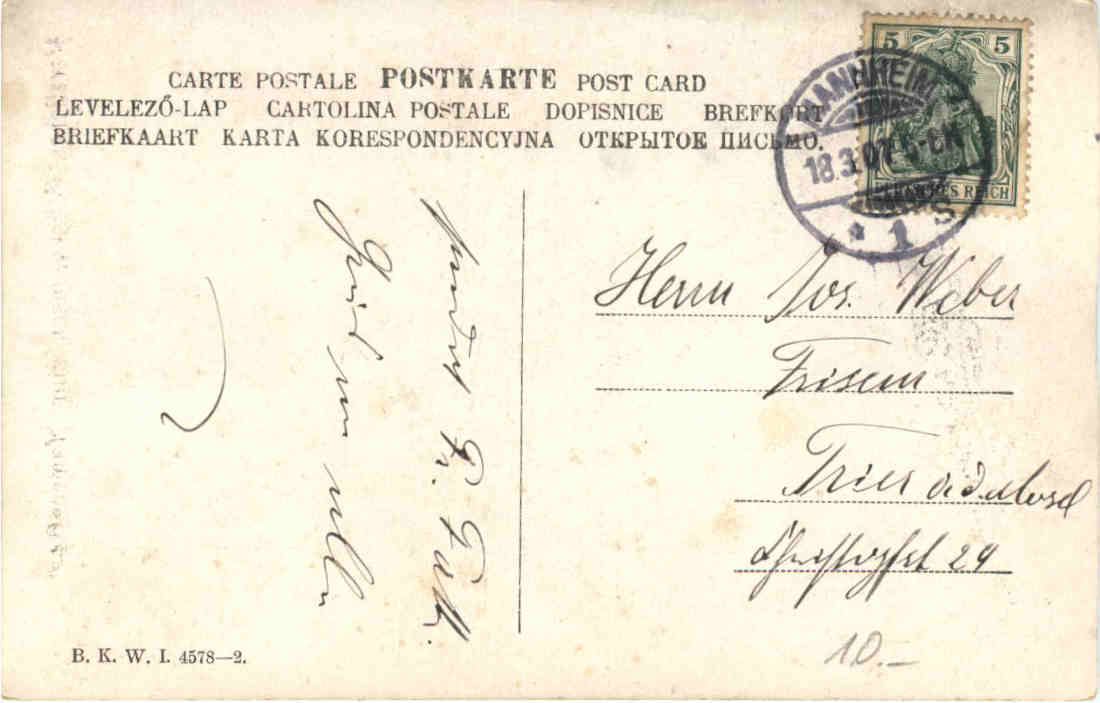 CARTE POSTALE POSTKARTE POST CARD
LEVELEZŐ-LAP CARTOLINA POSTALE DOPISNICE BREFKORT
BRIEFKAART KARTA KORESPONDENCYJNA ОТКРЫТОЕ ПИСЬМО.
5 5
MANNHEIM
18.3.07
* 1 S
REICH
Herrn Jos. Weber
Friseur
Trier a.d. Mosel
29
Fr.
B. K. W. I. 4578—2.
10.—